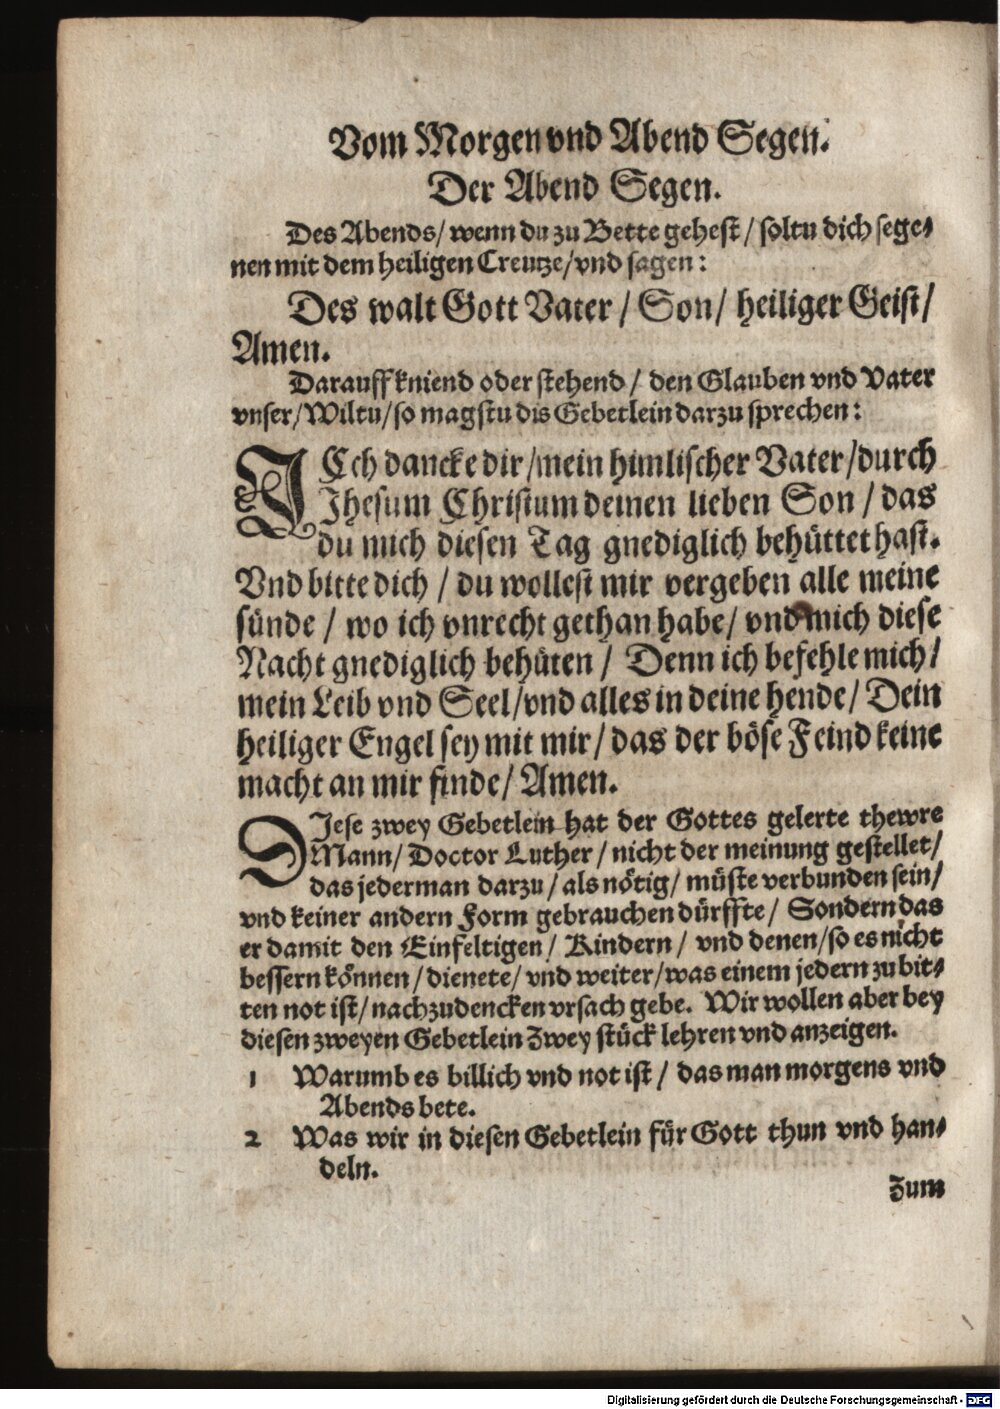 Vom Morgen vnd Abend Segen.
Der Abend Segen.
Des Abends/ wenn du zu Bette gehest/ soltu dich sege-
nen mit dem heiligen Creutze/ vnd sagen:
Des walt Gott Vater/ Son/ heiliger Geist/
Amen.
Darauff kniend oder stehend/ den Glauben vnd Vater
vnser/ Wiltu/ so magstu dis Gebetlein darzu sprechen:
ICh dancke dir/ mein himlischer Vater/ durch
Jhesum Christum deinen lieben Son/ das
du mich diesen Tag gnediglich behüttet hast.
Vnd bitte dich/ du wollest mir vergeben alle meine
sünde/ wo ich vnrecht gethan habe/ vnd mich diese
Nacht gnediglich behüten/ Denn ich befehle mich/
mein Leib vnd Seel/ vnd alles in deine hende/ Dein
heiliger Engel sey mit mir/ das der böse Feind keine
macht an mir finde/ Amen.
DIese zwey Gebetlein hat der Gottes gelerte thewre
Mann/ Doctor Luther/ nicht der meinung gestellet/
das jederman darzu/ als nötig/ müste verbunden sein/
vnd keiner andern Form gebrauchen dürffte/ Sondern das
er damit den Einfeltigen/ Kindern/ vnd denen/ so es nicht
bessern können/ dienete/ vnd weiter/ was einem jedern zu bit-
ten not ist/ nachzudencken vrsach gebe. Wir wollen aber bey
diesen zweyen Gebetlein Zwey stück lehren vnd anzeigen.
1 Warumb es billich vnd not ist/ das man morgens vnd
Abends bete.
2 Was wir in diesen Gebetlein für Gott thun vnd han-
deln.
Zum
Digitalisierung gefördert durch die Deutsche Forschungsgemeinschaft - DFG